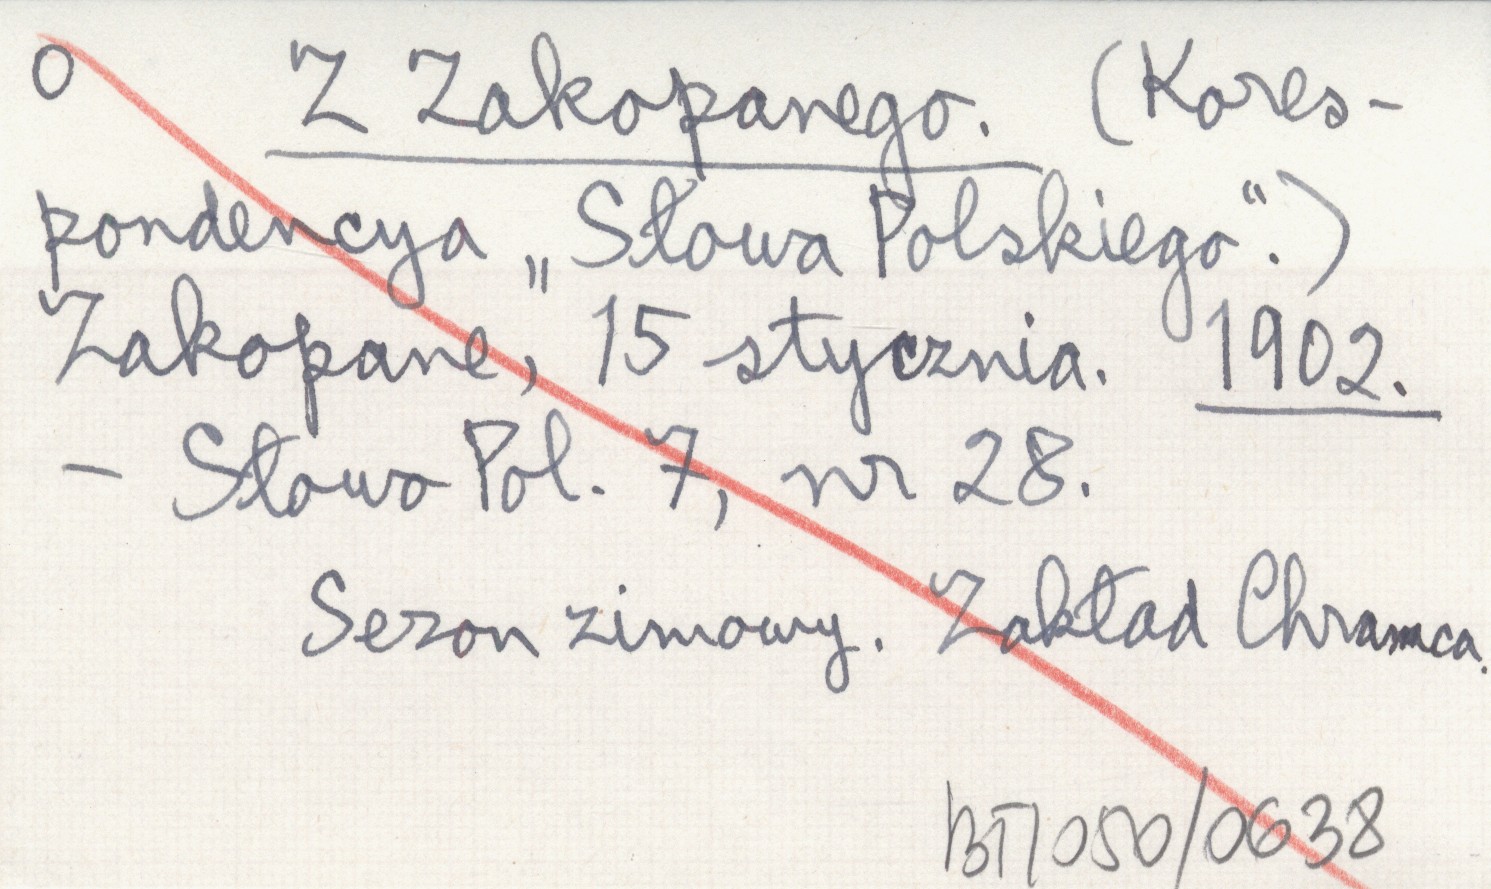 O Z Zakopanego. (Kores-
pondencya „Słowa Polskiego“.)
Zakopane, 15 stycznia. 1902.
– Słowo Pol. 7, nr 28.
Sezon zimowy. Zakład Chramca.
BT/050/0638